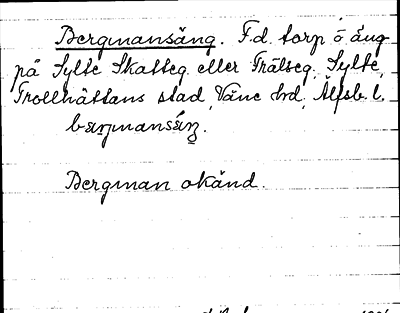 Bergmansäng. F.d. torp o äng
på Sylte Skatteg. eller Frälseg. Sylte,
Trollhättans stad, Väne hd, Älfsb. l.
Bergman okänd.